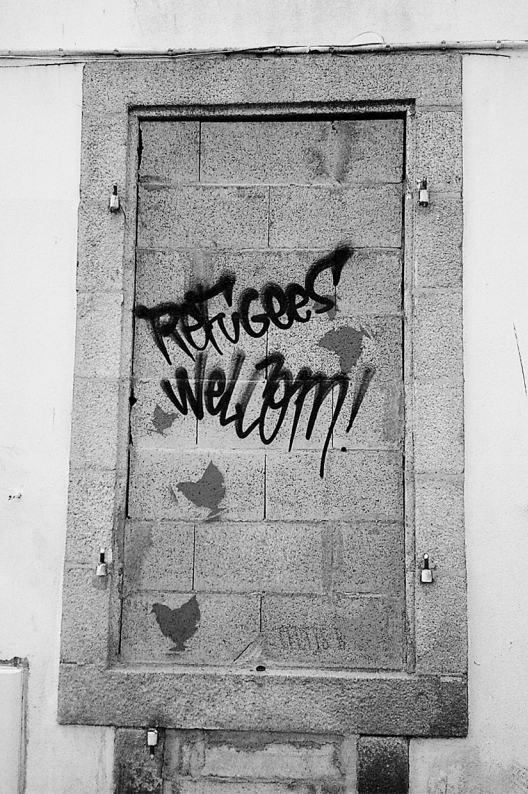 Refugees
wellcom!